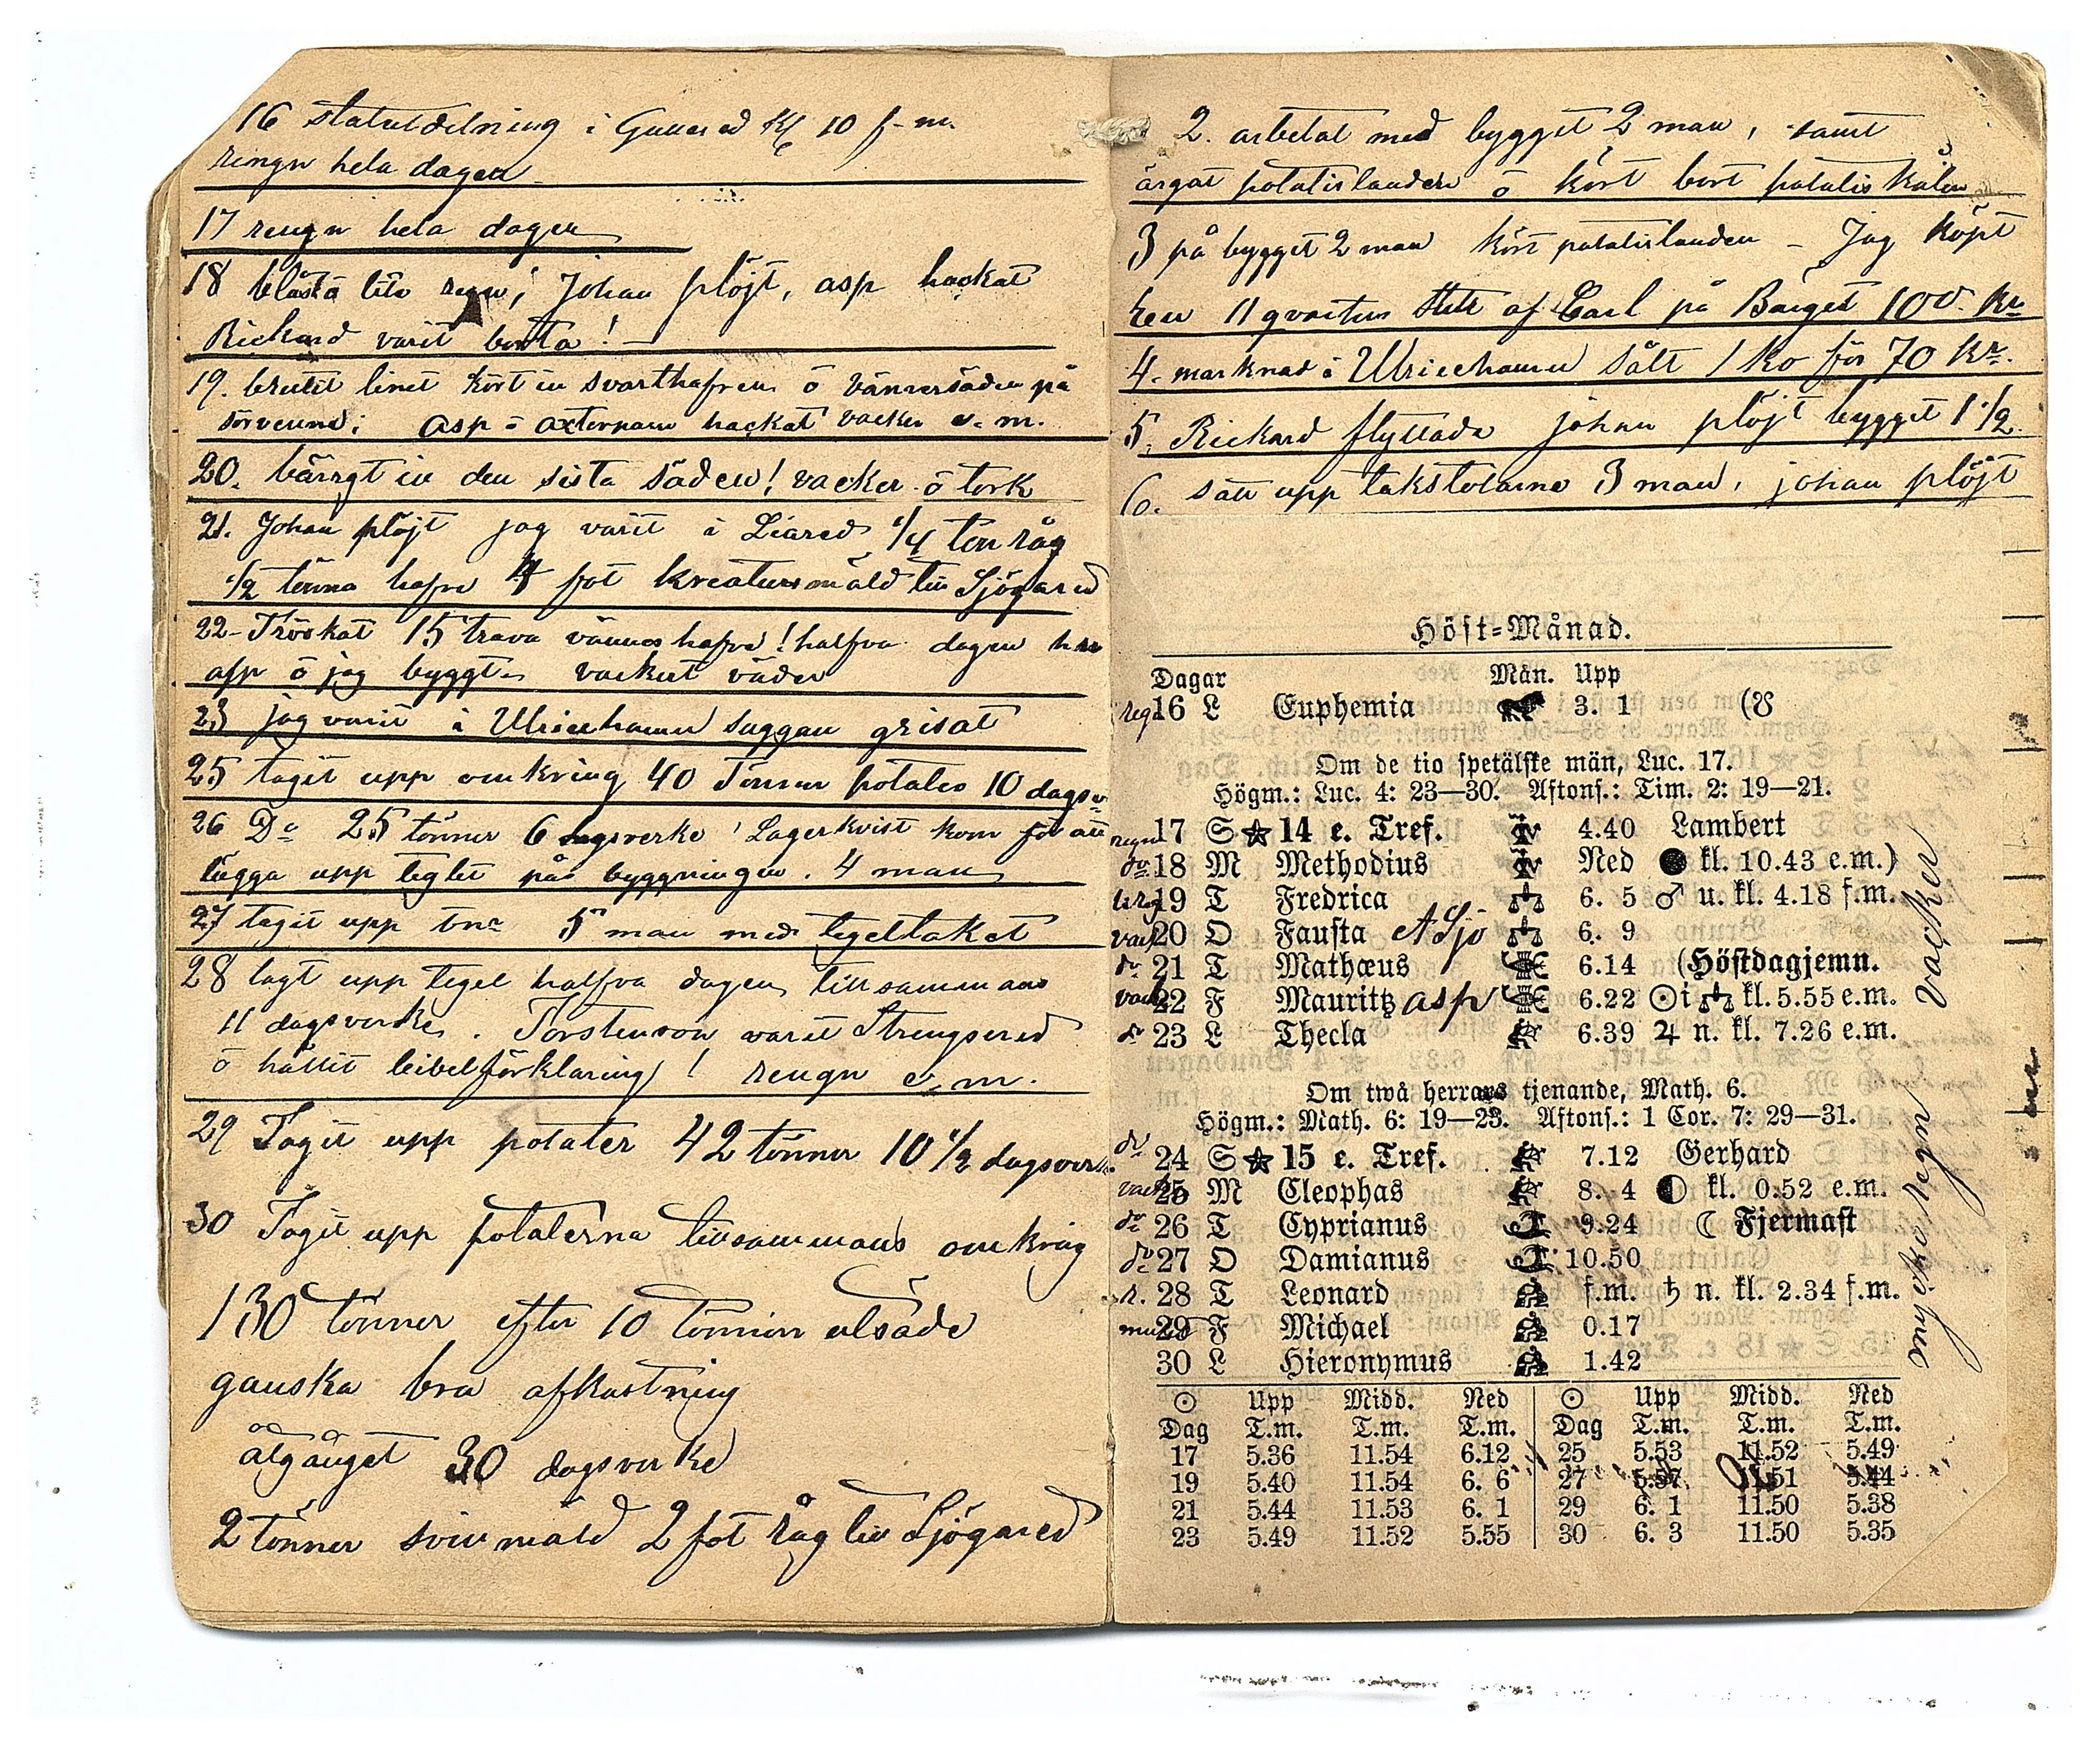 16 statutdelning i Gunared Kl 10 f-m.
rengn hela dagen
17 rengn hela dagen
18 blåst ö lite regn, Johan plöjt, asp hackat
Rickard varit borta! —
19. brutit linet kört in svarthafren ö vännersäden på
asp ö hackat vacker e. m.
20. bärrgt in den sista säden! vacker ö tork
21. Johan plöjt jag varit i Liared 1/4 ton råg
1/2 tönna hafre 4 fot kreatursmäld till Sjögared
22- Tröskat 15 trava vännes hafre! halfva dagen
asp ö jag byggt vackert väder
23 jag varit i Ulricehamn suggan grisat
25 tagit upp omkring 40 Tönner potates 10 dagsv
26 Do 25 tönner 6 dagsverke! Lagerkvist kom för att
lägga upp teglet på byggningen. 4 man
27 tagit upp 5 man med tegeltaket
28 lagt upp tegel halfva dagen tillsammans
11 dagsverke. Torstenson varit Strengsered
ö hållit bibelförklaring! rengn e. m.
29 Tagit upp potater 42 tönner 10 1/2 dagsverk
30 Tagit upp potaterna tillsammans omkring
130 tönner efter 10 tönner utsäde
ganska bra afkastning
åtgånget 30 dagsverke
2 tönner svinmäld 2 fot råg till Sjögared
2. arbetat med bygget 2 man, samt
ärgat potatislanden ö kört bort potatiskålen
3 på bygget 2 man kört potatislanden – Jag köpt
en 11 qvarters af Carl på Bärget 100 Kr
4. marknad i Ulricehamn sålt 1 Ko för 70 Kr.
5. Rickard flyttade johan plöjt bygget 1 1/2
6. satt upp takstolarna 3 man, johan plöjt
Höst-Månad.
Dagar Mån. Upp
regn 16 L Euphemia 3. 1 (☋
Om de tio spetälske män, Luc. 17.
Högm.: Luc. 4: 23—30. Aftons.: Tim. 2: 19—21.
regn 17 S ☆ 14 e. Tref. 4.40 Lambert
do 18 M Methodius Ned ● kl. 10.43 e.m.)
19 T Fredrica ♎ 6. 5 ♂ u. kl. 4.18 f.m.
vack 20 O Fausta A Sjö ♎ 6. 9
do 21 T Mathæus 6.14 (Höstdagjemn.
vack 22 F Mauritz asp 6.22 ☉ i ♎ kl. 5.55 e.m.
do 23 L Thecla 6.39 ♃ n. kl. 7.26 e.m.
Om twå herrars tjenande, Math. 6.
Högm.: Math. 6: 19—23. Aftons.: 1 Cor. 7: 29—31.
do 24 S ☆ 15 e. Tref. 7.12 Gerhard
vack 25 M Cleophas 8. 4 ◐ kl. 0.52 e.m.
do 26 T Cyprianus 9.24 ☾ Fjermast
do 27 O Damianus 10.50
r. 28 T Leonard f.m. ♄ n. kl. 2.34 f.m.
29 F Michael 0.17
30 L Hieronymus 1.42
mycke regn vacker
☉ Upp Midd. Ned ☉ Upp Midd. Ned
Dag T.m. T.m. T.m. Dag T.m. T.m. T.m.
17 5.36 11.54 6.12 25 5.53 11.52 5.49
19 5.40 11.54 6. 6 27 5.57 11.51 5.44
21 5.44 11.53 6. 1 29 6. 1 11.50 5.38
23 5.49 11.52 5.55 30 6. 3 11.50 5.35